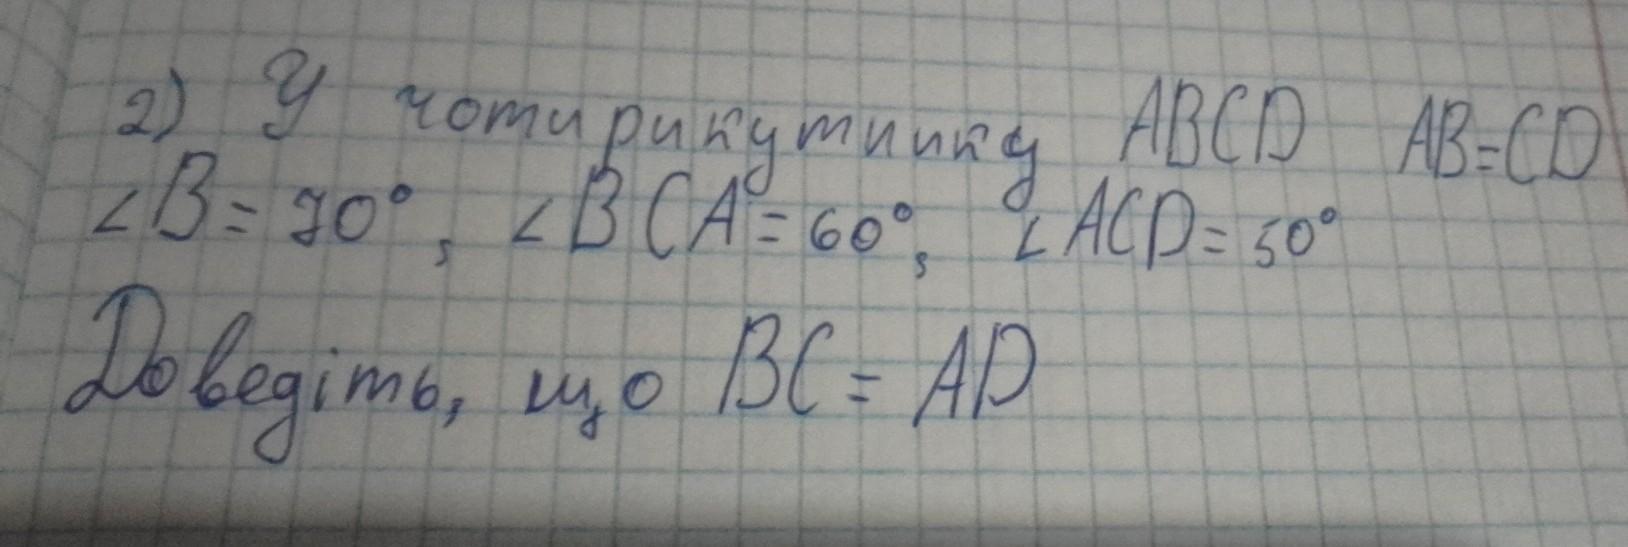 2) У чотирикутнику ABCD AB=CD
∠B=70°, ∠BCA=60°, ∠ACD=50°
Доведіть, що BC=AD